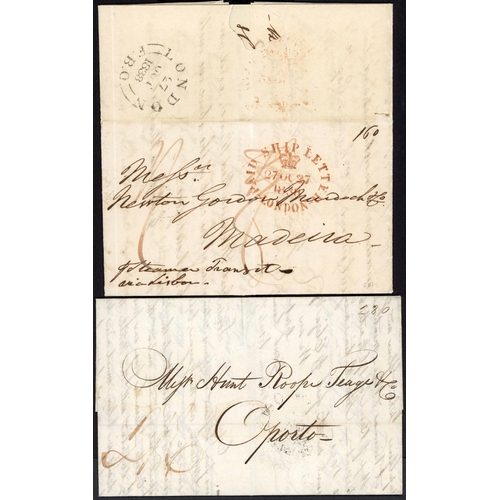 LONDON
27
OCT
1838
F.B.O
160
PAID SHIP LETTER
27 OC 27
1838
LONDON
Messrs
Newton Gordon Murdoch & Co.
Madeira
p Steamer Transit
via Lisbon
280
Messrs Hunt Roope Teage & Co
Oporto